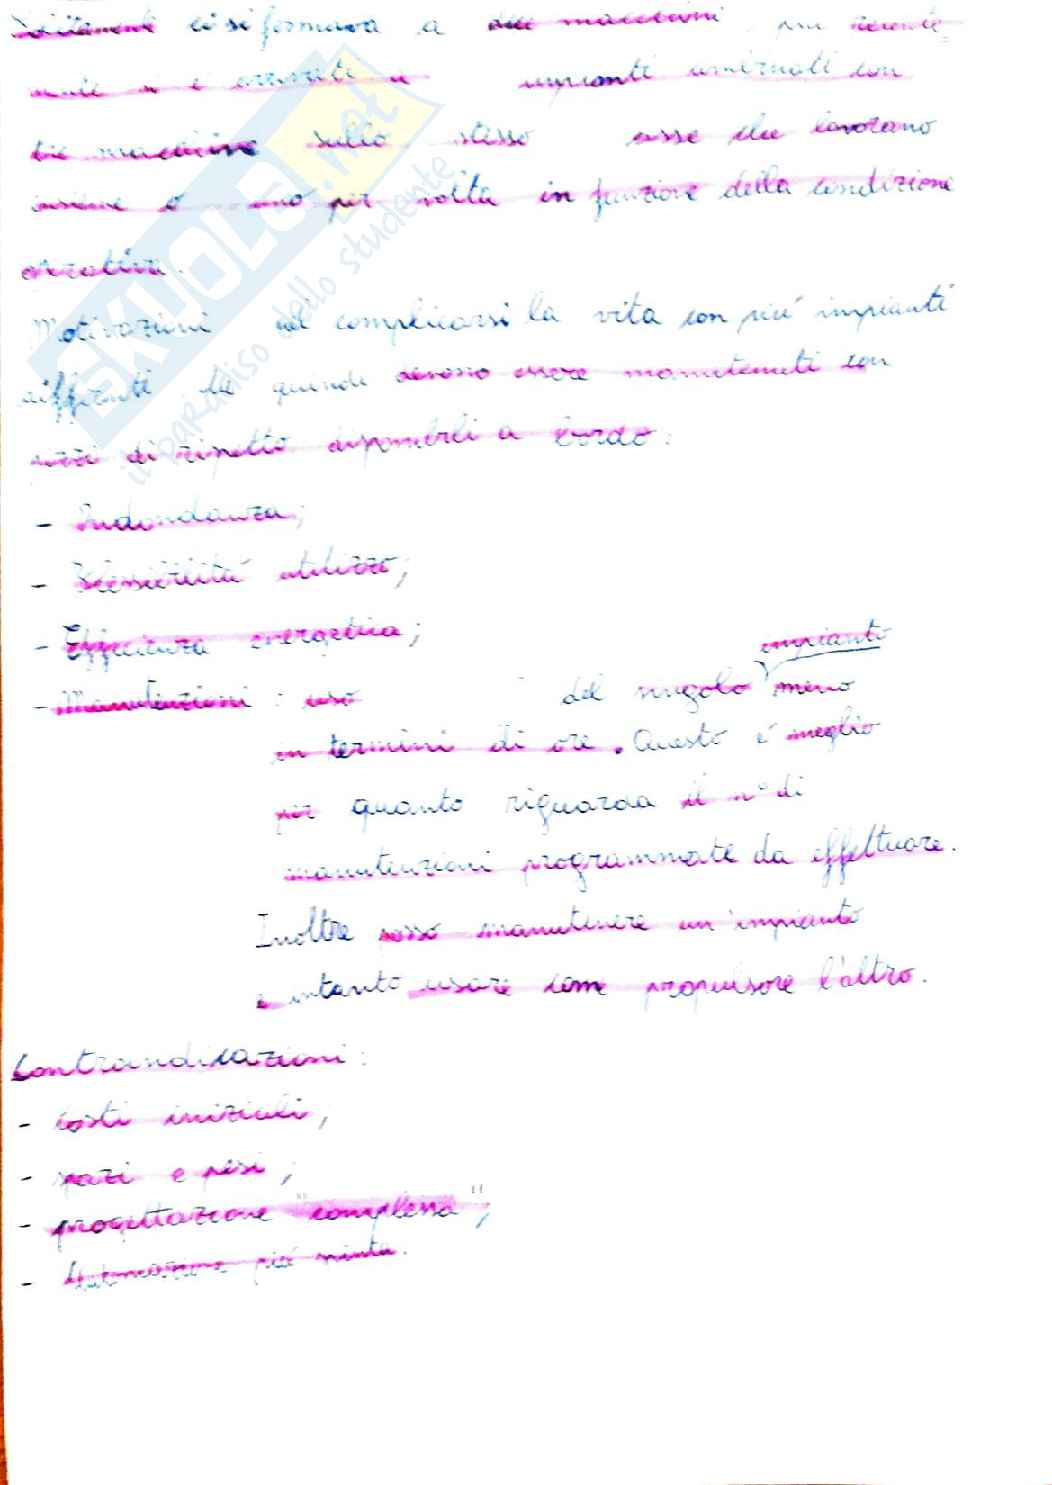 Solitamente ci si fermava a due macchine più recente=
mente si è arrivati a impianti combinati con
tre macchine sullo stesso asse che lavorano
insieme o uno per volta in funzione della condizione
operativa.
Motivazioni nel complicarsi la vita con più impianti
differenti che quindi devono essere manutenuti con
pezzi di rispetto disponibili a bordo:
- Ridondanza;
- Flessibilità utilizzo;
- Efficienza energetica;
- Manutenzioni: uso del singolo impianto meno
in termini di ore. Questo è meglio
per quanto riguarda il n° di
manutenzioni programmate da effettuare.
Inoltre posso manutenere un impianto
e intanto usare come propulsore l'altro.
Controindicazioni:
- costi iniziali;
- spazi e pesi;
- progettazione "complessa";
- Automazione più spinta.
SKUOLA.net
il paradiso dello studente